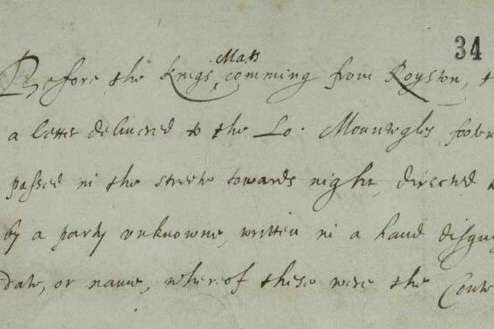 34
Before the Kings Matis comming from Royston,
a letter delivered to the Lo. Mounteagles
passed in the streete towards night, directed
by a party unknowne, written in a hand
date, or name, wherof these were the